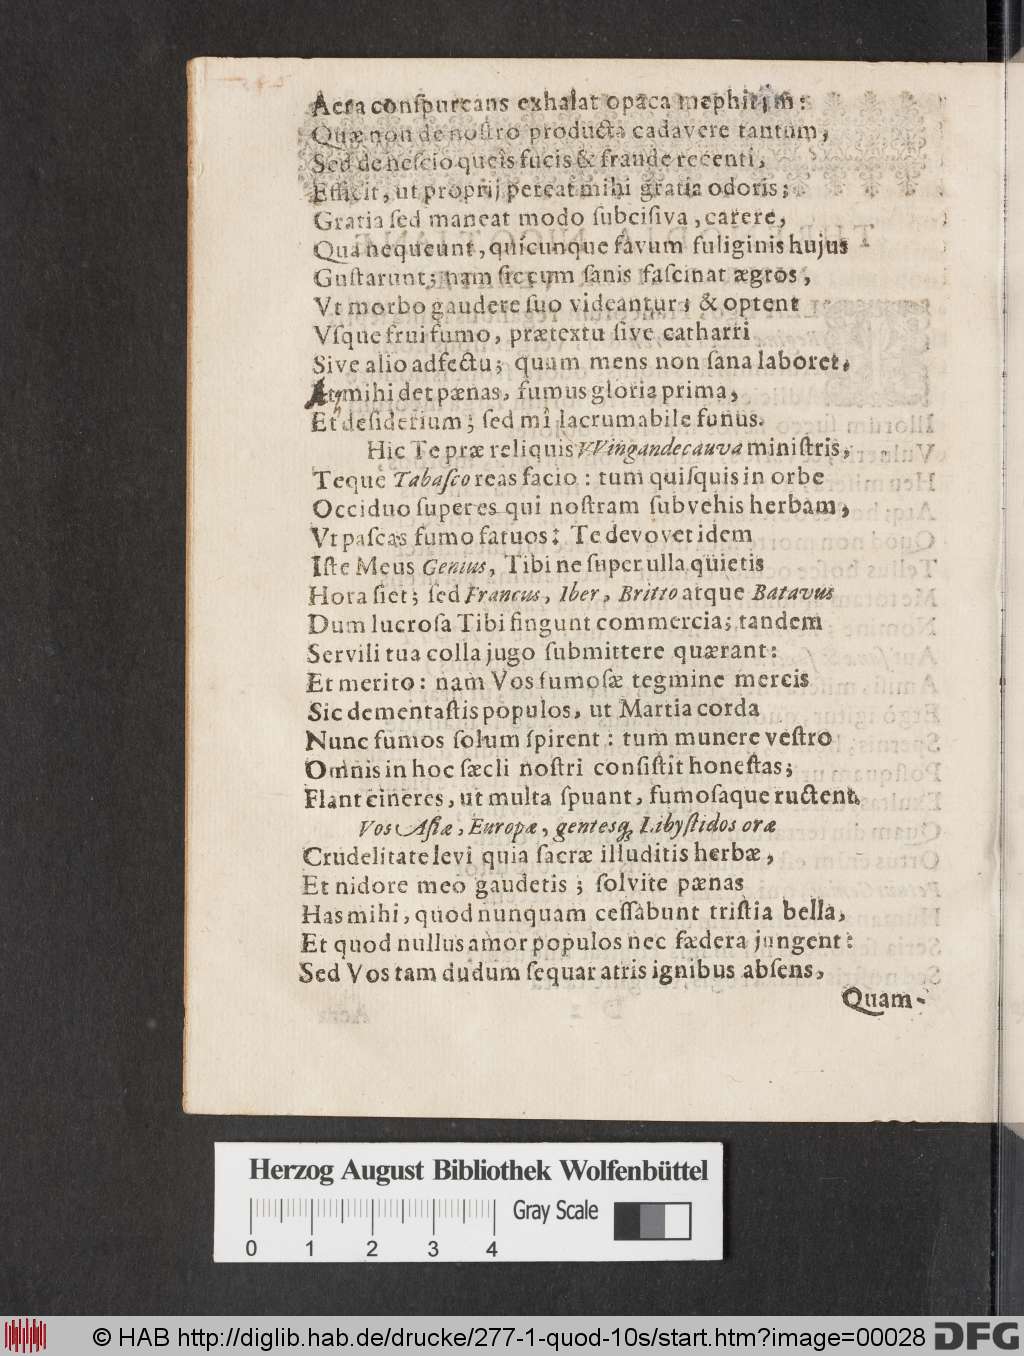 Aera conſpurcans exhalat opaca mephitim:
Quæ non de noſtro producta cadavere tantum,
Sed de neſcio queis fucis & fraude recenti,
Efficit, ut proprij pereat mihi gratia odoris;
Gratia ſed maneat modo ſubciſiva, carere,
Qua nequeunt, quicunque favum fuliginis hujus
Guſtarunt; nam ſic cum ſanis faſcinat ægros,
Vt morbo gaudere ſuo videantur; & optent
Vſque frui fumo, prætextu ſive catharri
Sive alio adfectu; quum mens non ſana laboret.
At mihi det pænas, fumus gloria prima,
Et deſiderium; ſed mî lacrumabile funus.
Hic Te præ reliquis VVingandecauva miniſtris,
Teque Tabaſco reas facio: tum quiſquis in orbe
Occiduo ſuperes qui noſtram ſubvehis herbam,
Vt paſcas fumo fatuos: Te devovet idem
Iſte Meus Genius, Tibi ne ſuper ulla quietis
Hora ſiet; ſed Francus, Iber, Britto atque Batavus
Dum lucroſa Tibi fingunt commercia; tandem
Servili tua colla jugo ſubmittere quærant:
Et merito: nam Vos fumoſæ tegmine mercis
Sic dementaſtis populos, ut Martia corda
Nunc fumos ſolum ſpirent: tum munere veſtro
Omnis in hoc ſæcli noſtri conſiſtit honeſtas;
Flant cineres, ut multa ſpuant, fumoſaque ructent.
Vos Aſiæ, Europæ, gentesq; Libyſtidos oræ
Crudelitate levi quia ſacræ illuditis herbæ,
Et nidore meo gaudetis; ſolvite pænas
Has mihi, quod nunquam ceſſabunt triſtia bella,
Et quod nullus amor populos nec fædera jungent:
Sed Vos tam dudum ſequar atris ignibus abſens,
Quam-
Herzog August Bibliothek Wolfenbüttel
Gray Scale
0 1 2 3 4
© HAB http://diglib.hab.de/drucke/277-1-quod-10s/start.htm?image=00028 DFG